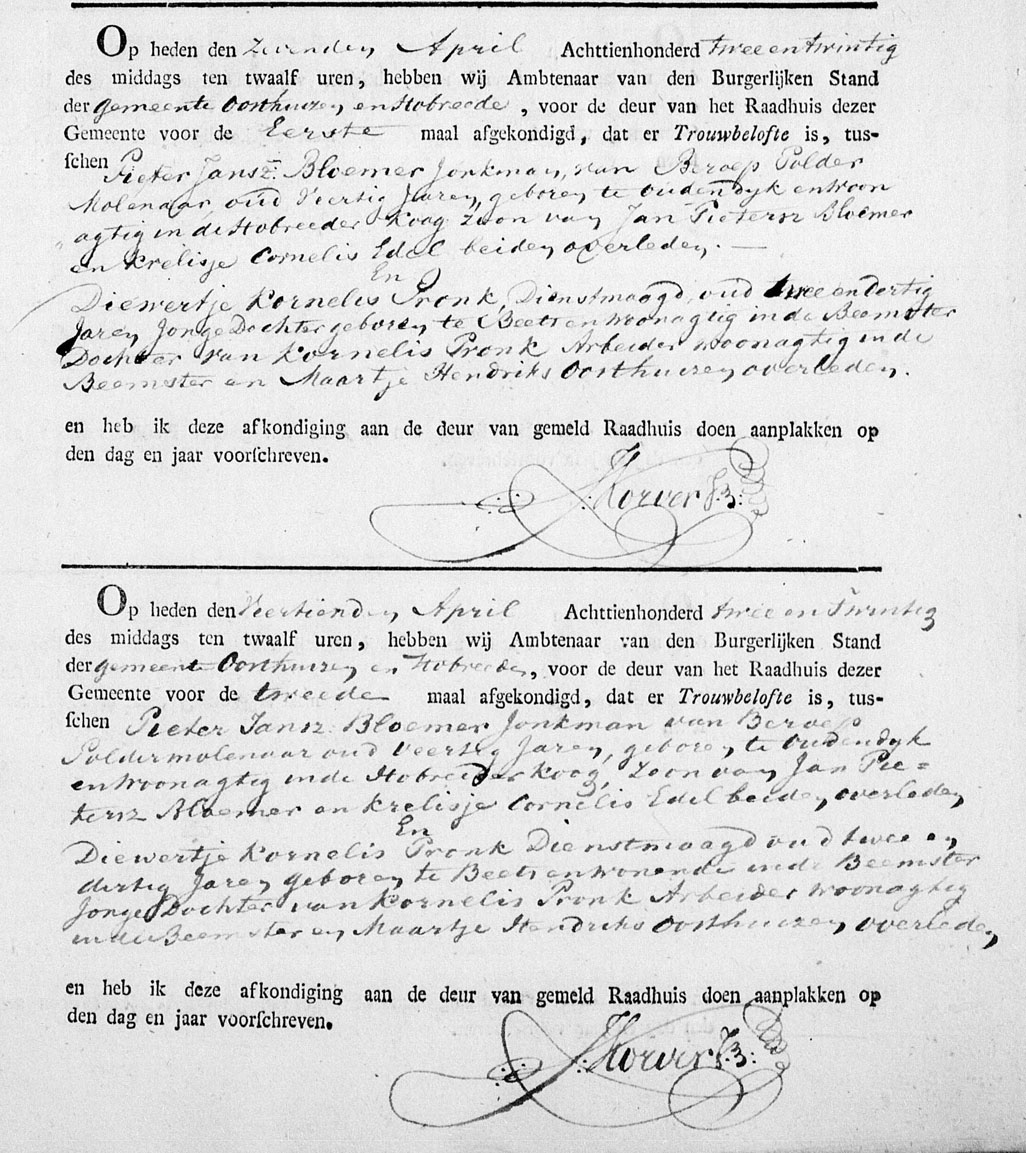 Op heden den Zevenden April Achttienhonderd twee en twintig
des middags ten twaalf uren, hebben wij Ambtenaar van den Burgerlijken Stand
der gemeente Oosthuizen en Hobreede, voor de deur van het Raadhuis dezer
Gemeente voor de Eerste maal afgekondigd, dat er Trouwbelofte is, tus-
ſchen Pieter Jansz: Bloemer Jonkman, van Beroep Polder
Molenaar, oud Veertig Jaren, geboren te Oudendyk en woon
agtig in de Hobreeder Koog Zoon van Jan Pietersz Bloemer
en Krelisje Cornelis Edel beiden overleden. —
En
Diewertje Kornelis Pronk, Dienstmaagd, oud twee en dertig
Jaren Jonge Dochter geboren te Beets en woonagtig in de Beemster
Dochter van Kornelis Pronk Arbeider woonagtig in de
Beemster en Maartje Hendriks Oosthuizen overleden.
en heb ik deze afkondiging aan de deur van gemeld Raadhuis doen aanplakken op
den dag en jaar voorſchreven.
Korver Jz:
Op heden den Veertienden April Achttienhonderd twee en Twintig
des middags ten twaalf uren, hebben wij Ambtenaar van den Burgerlijken Stand
der gemeente Oosthuizen en Hobreeden, voor de deur van het Raadhuis dezer
Gemeente voor de tweede maal afgekondigd, dat er Trouwbelofte is, tus-
ſchen Pieter Jansz: Bloemer Jonkman van Beroep
Poldermolenaar oud veertig Jaren, geboren te Oudendyk
en Woonagtig in de Hobreeder Koog, Zoon van Jan Pie=
tersz Bloemer en Krelisje Cornelis Edel beiden overleden
En
Diewertje Kornelis Pronk Dienstmaagd oud twee en
dertig Jaren geboren te Beets en wonende in de Beemster
Jonge Dochter van Kornelis Pronk Arbeider woonagtig
in de Beemster en Maartje Hendriks Oosthuizen overleden
en heb ik deze afkondiging aan de deur van gemeld Raadhuis doen aanplakken op
den dag en jaar voorſchreven.
Korver Jz: